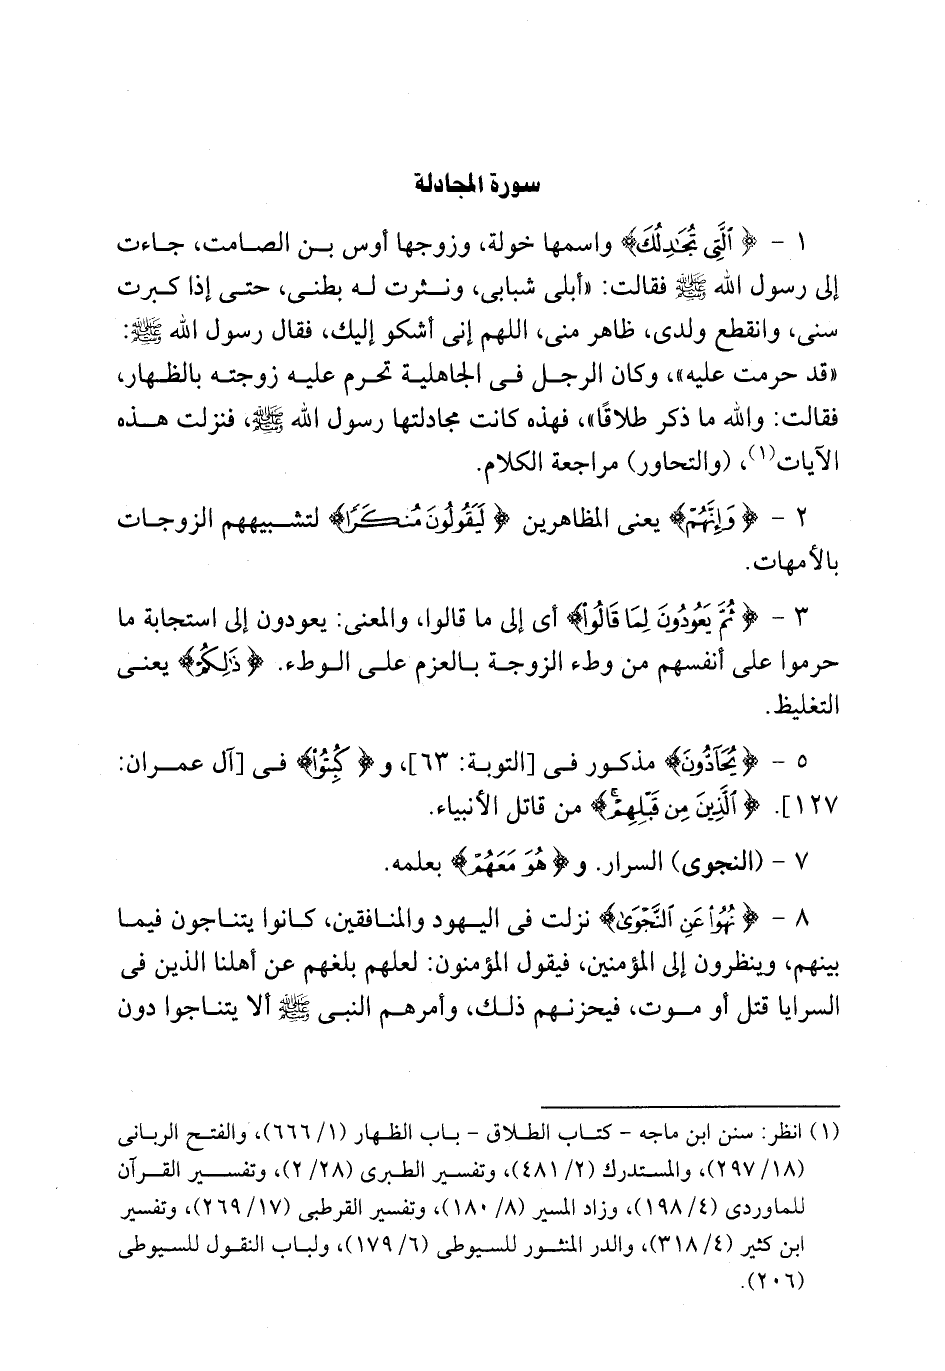 سورة المجادلة
١ - ﴿ ٱلَّتِى تُجَٰدِلُكَ﴾ واسمها خولة، وزوجها أوس بن الصامت، جاءت
إلى رسول الله ﷺ فقالت: «أبلى شبابى، ونثرت له بطنى، حتى إذا كبرت
سنى، وانقطع ولدى، ظاهر منى، اللهم إنى أشكو إليك، فقال رسول الله ﷺ:
«قد حرمت عليه»، وكان الرجل فى الجاهلية تحرم عليه زوجته بالظهار،
فقالت: والله ما ذكر طلاقًا»، فهذه كانت مجادلتها رسول الله ﷺ، فنزلت هذه
الآيات(١)، (والتحاور) مراجعة الكلام.
٢ - ﴿ وَإِنَّهُمْ﴾ يعنى المظاهرين ﴿ لَيَقُولُونَ مُنكَرًا﴾ لتشبيههم الزوجات
بالأمهات.
٣ - ﴿ ثُمَّ يَعُودُونَ لِمَا قَالُوا۟﴾ أى إلى ما قالوا، والمعنى: يعودون إلى استجابة ما
حرموا على أنفسهم من وطء الزوجة بالعزم على الوطء. ﴿ ذَٰلِكُمْ﴾ يعنى
التغليظ.
٥ - ﴿ يُحَآدُّونَ﴾ مذكور فى [التوبة: ٦٣]، و﴿ كُبِتُوا۟﴾ فى [آل عمران:
١٢٧]. ﴿ ٱلَّذِينَ مِن قَبْلِهِمْ ۚ﴾ من قاتل الأنبياء.
٧ - (النجوى) السرار. و﴿ هُوَ مَعَهُمْ﴾ بعلمه.
٨ - ﴿ نُهُوا۟ عَنِ ٱلنَّجْوَىٰ﴾ نزلت فى اليهود والمنافقين، كانوا يتناجون فيما
بينهم، وينظرون إلى المؤمنين، فيقول المؤمنون: لعلهم بلغهم عن أهلنا الذين فى
السرايا قتل أو موت، فيحزنهم ذلك، وأمرهم النبى ﷺ ألا يتناجوا دون
(١) انظر: سنن ابن ماجه - كتاب الطلاق - باب الظهار (١/ ٦٦٦)، والفتح الربانى
(١٨/ ٢٩٧)، والمستدرك (٢/ ٤٨١)، وتفسير الطبرى (٢٨/ ٢)، وتفسير القرآن
للماوردى (٤/ ١٩٨)، وزاد المسير (٨/ ١٨٠)، وتفسير القرطبى (١٧/ ٢٦٩)، وتفسير
ابن كثير (٤/ ٣١٨)، والدر المنثور للسيوطى (٦/ ١٧٩)، ولباب النقول للسيوطى
(٢٠٦).